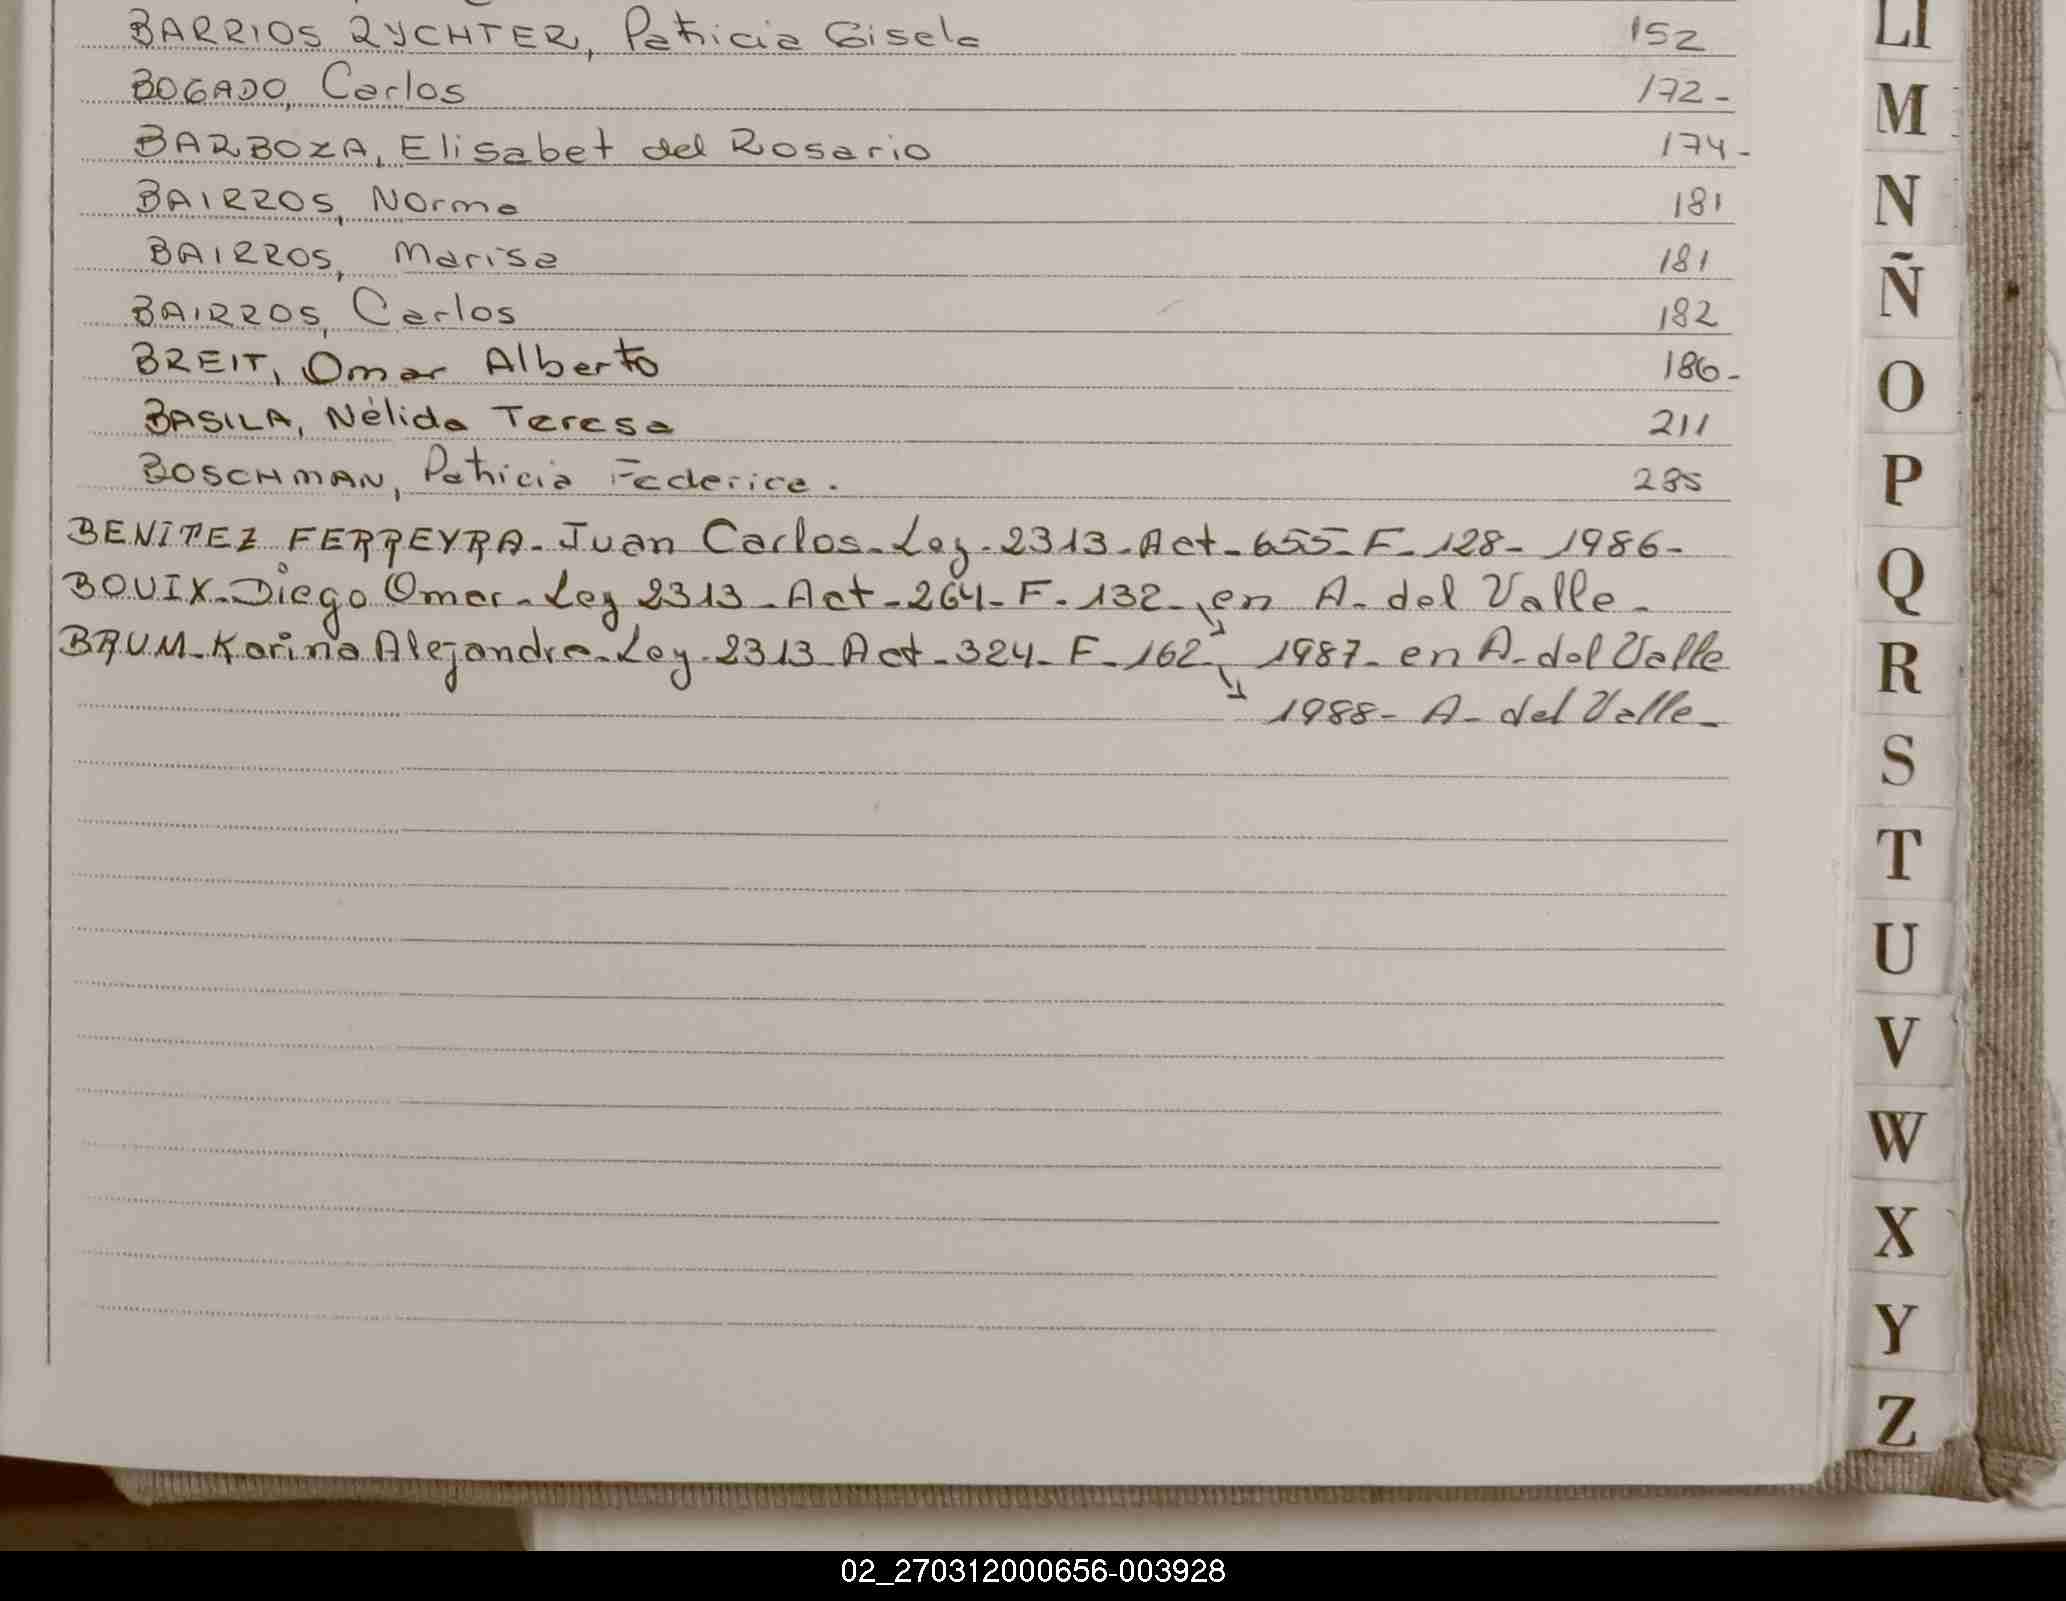 BARRIOS RYCHTER, Patricia Gisela 152
BOGADO, Carlos 172-
BARBOZA, Elisabet del Rosario 174-
BAIRROS, Norma 181
BAIRROS, Marisa 181
BAIRROS, Carlos 182
BREIT, Omar Alberto 186-
BASILA, Nélida Teresa 211
BOSCHMAN, Patricia Federica. 285
BENITEZ FERREYRA- Juan Carlos- Ley- 2313- Act- 655- F- 128- 1986-
BOUIX- Diego Omar- Ley 2313- Act- 264- F- 132- en A- del Valle-
BRUM- Karina Alejandra- Ley- 2313- Act- 324- F- 162 1987- en A- del Valle
1988- A- del Valle-
LI
M
N
Ñ
O
P
Q
R
S
T
U
V
W
X
Y
Z
02_270312000656-003928